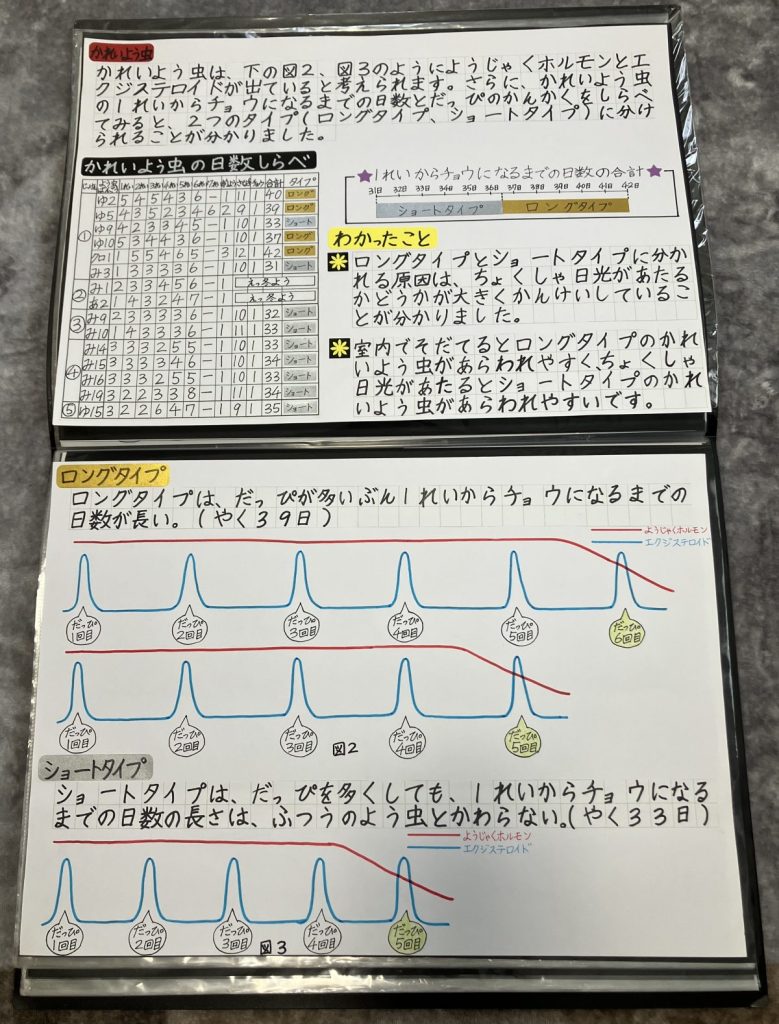 かれいよう虫
かれいよう虫は、下の図2、図3のようにようじゃくホルモンとエ
クジステロイドが出ていると考えられます。さらに、かれいよう虫
の1れいからチョウになるまでの日数とだっぴのかんかくをしらべ
てみると、2つのタイプ(ロングタイプ、ショートタイプ)に分け
られることが分かりました。
かれいよう虫の日数しらべ
合計 タイプ
① ゆ2 5 4 5 4 3 6 ー 1 11 1 40 ロング
ゆ5 4 3 5 2 3 4 6 2 9 1 39 ロング
ゆ9 4 2 3 3 4 5 ー 1 10 1 33 ショート
ゆ10 5 3 4 4 3 6 ー 1 10 1 37 ロング
クロ1 1 4 5 6 5 ー 3 12 1 42 ロング
み3 1 3 3 3 3 6 ー 1 10 1 31 ショート
② み1 2 3 3 4 5 6 ー 1 えっ冬よう
あ2 1 4 3 2 4 7 ー 1 えっ冬よう
③ み9 2 3 3 3 3 6 ー 1 10 1 32 ショート
み10 1 4 3 3 3 6 ー 1 11 1 33 ショート
④ み14 3 3 3 2 5 5 ー 1 10 1 33 ショート
み15 3 3 3 3 4 6 ー 1 10 1 34 ショート
み16 3 3 3 2 5 5 ー 1 10 1 33 ショート
み19 3 2 2 3 3 8 ー 1 11 1 34 ショート
⑤ ゆ15 3 2 2 6 4 7 ー 1 9 1 35 ショート
★1れいからチョウになるまでの日数の合計★
31日 32日 33日 34日 35日 36日 37日 38日 39日 40日 41日 42日
ショートタイプ ロングタイプ
わかったこと
ロングタイプとショートタイプに分か
れる原因は、ちょくしゃ日光があたる
かどうかが大きくかんけいしているこ
とが分かりました。
室内でそだてるとロングタイプのかれ
いよう虫があらわれやすく、ちょくしゃ
日光があたるとショートタイプのかれ
いよう虫があらわれやすいです。
ロングタイプ
ロングタイプは、だっぴが多いぶん1れいからチョウになるまでの
日数が長い。(やく39日)
ようじゃくホルモン
エクジステロイド
だっぴ1回目 だっぴ2回目 だっぴ3回目 だっぴ4回目 だっぴ5回目 だっぴ6回目
だっぴ1回目 だっぴ2回目 だっぴ3回目 だっぴ4回目 だっぴ5回目
図2
ショートタイプ
ショートタイプは、だっぴを多くしても、1れいからチョウになる
までの日数の長さは、ふつうのよう虫とかわらない。(やく33日)
ようじゃくホルモン
エクジステロイド
だっぴ1回目 だっぴ2回目 だっぴ3回目 だっぴ4回目 だっぴ5回目
図3